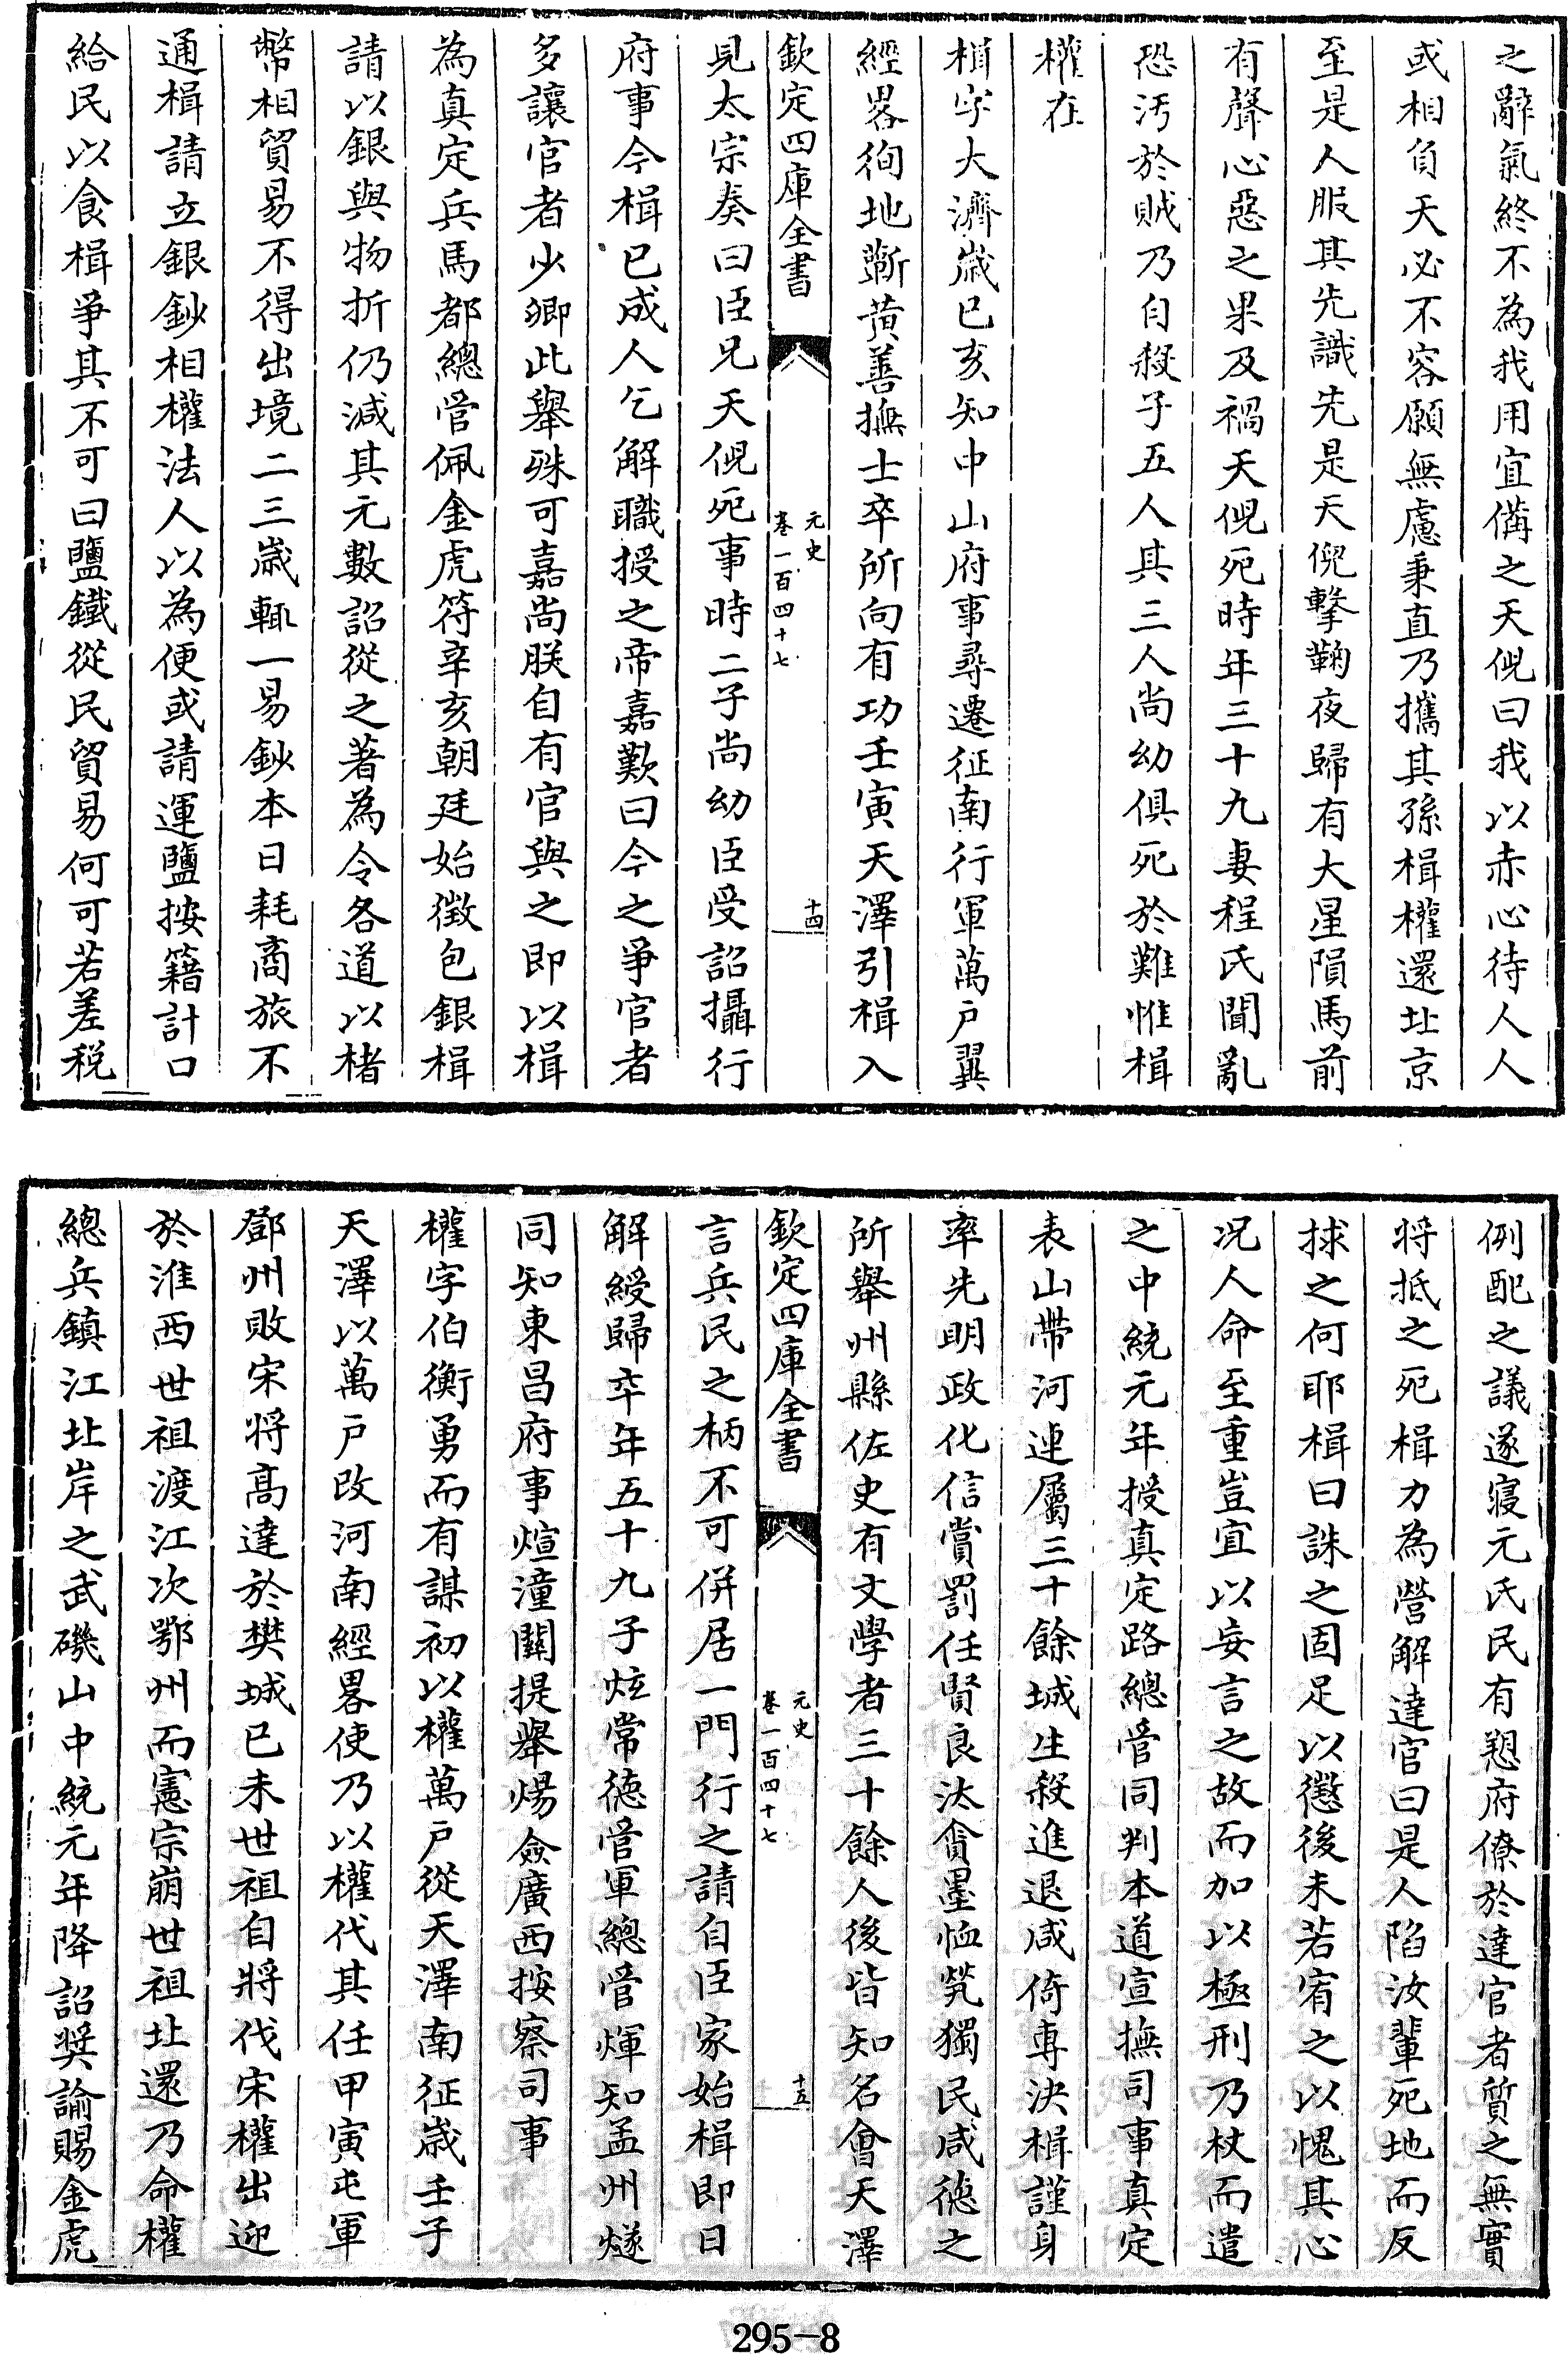 之辭氣終不為我用宜備之天倪曰我以赤心待人人
或相負天必不容願無慮秉直乃攜其孫楫權還北京
至是人服其先識先是天倪擊鞠夜歸有大星隕馬前
有聲心惡之果及禍天倪死時年三十九妻程氏聞亂
恐汚於賊乃自殺子五人其三人尚幼俱死於難惟楫
權在
楫字大濟歲已亥知中山府事尋遷征南行軍萬戸翼
經畧徇地蘄黄善撫士卒所向有功壬寅天澤引楫入
欽定四庫全書
元史
卷一百四十七
十四
見太宗奏曰臣兄天倪死事時二子尚幼臣受詔攝行
府事今楫已成人乞解職授之帝嘉歎曰今之爭官者
多讓官者少卿此舉殊可嘉尚朕自有官與之即以楫
為真定兵馬都總管佩金虎符辛亥朝廷始徵包銀楫
請以銀與物折仍減其元數詔從之著為令各道以楮
幣相貿易不得出境二三歲輒一易鈔本日耗商旅不
通楫請立銀鈔相權法人以為便或請運鹽按籍計口
給民以食楫爭其不可曰鹽鐵從民貿易何可若差税
例配之議遂寢元氏民有愬府僚於達官者質之無實
将抵之死楫力為營解達官曰是人陷汝輩死地而反
捄之何耶楫曰誅之固足以懲後未若宥之以愧其心
况人命至重豈宜以妄言之故而加以極刑乃杖而遣
之中統元年授真定路總管同判本道宣撫司事真定
表山帶河連屬三十餘城生殺進退咸倚專決楫謹身
率先明政化信賞罰任賢良汰貪墨恤煢獨民咸德之
所舉州縣佐史有文學者三十餘人後皆知名會天澤
欽定四庫全書
元史
卷一百四十七
十五
言兵民之柄不可併居一門行之請自臣家始楫即日
解綬歸卒年五十九子炫常德管軍總管煇知孟州燧
同知東昌府事煊潼關提舉煬僉廣西按察司事
權字伯衡勇而有謀初以權萬戸從天澤南征歲壬子
天澤以萬戸改河南經畧使乃以權代其任甲寅屯軍
鄧州敗宋将高達於樊城已未世祖自將伐宋權出迎
於淮西世祖渡江次鄂州而憲宗崩世祖北還乃命權
總兵鎮江北岸之武磯山中統元年降詔奬諭賜金虎
295-8